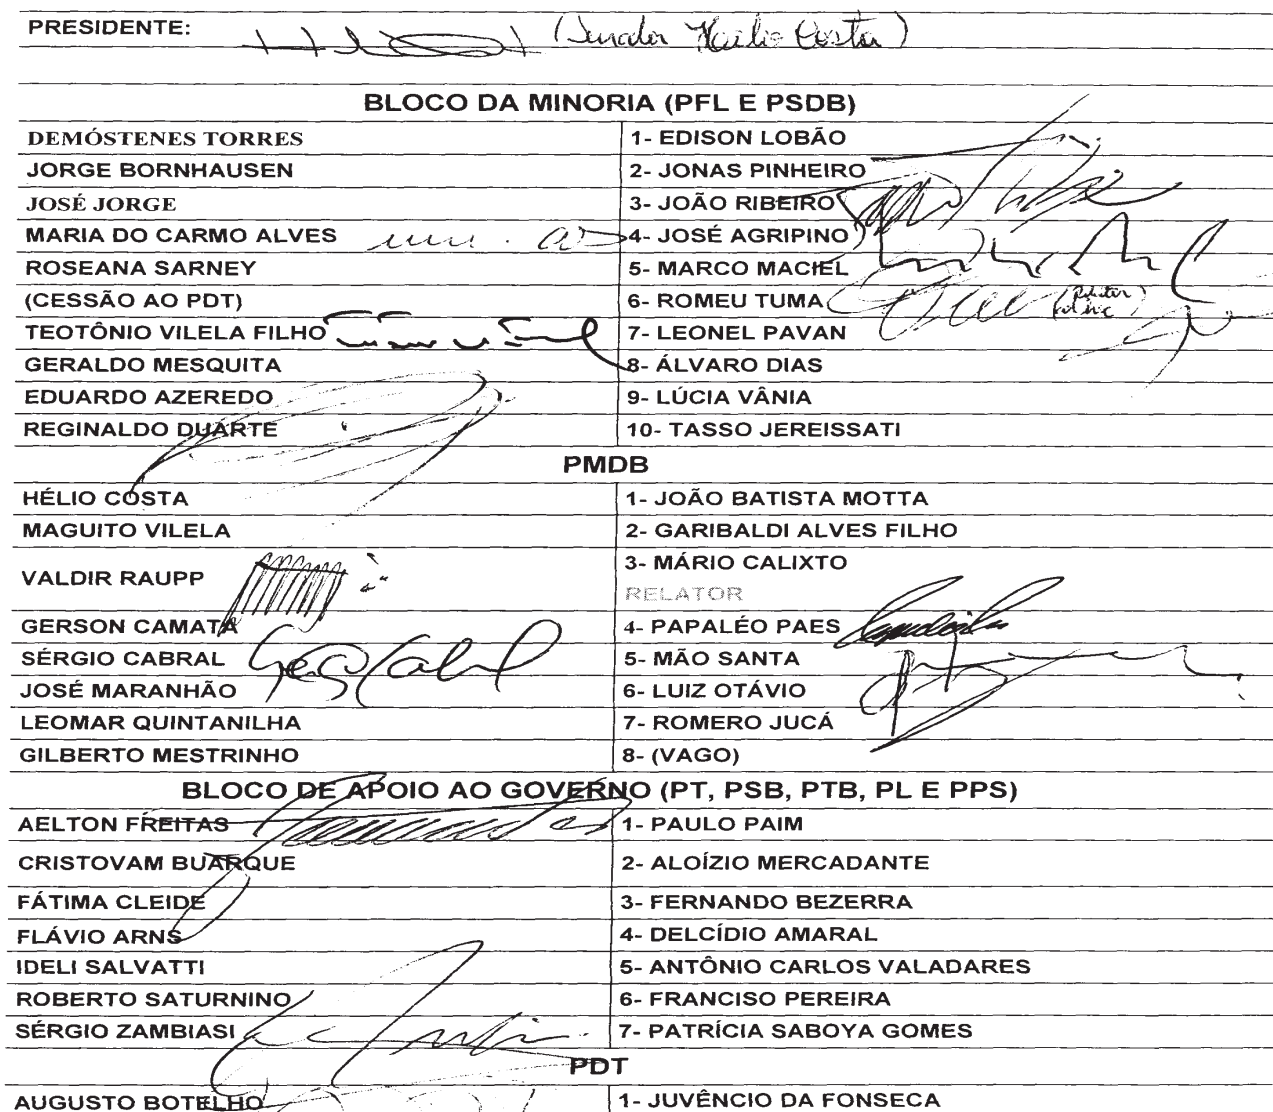 PRESIDENTE: (Senador Hélio Costa)
BLOCO DA MINORIA (PFL E PSDB)
DEMÓSTENES TORRES 1- EDISON LOBÃO
JORGE BORNHAUSEN 2- JONAS PINHEIRO
JOSÉ JORGE 3- JOÃO RIBEIRO
MARIA DO CARMO ALVES 4- JOSÉ AGRIPINO
ROSEANA SARNEY 5- MARCO MACIEL
(CESSÃO AO PDT) 6- ROMEU TUMA
TEOTÔNIO VILELA FILHO 7- LEONEL PAVAN
GERALDO MESQUITA 8- ÁLVARO DIAS
EDUARDO AZEREDO 9- LÚCIA VÂNIA
REGINALDO DUARTE 10- TASSO JEREISSATI
PMDB
HÉLIO COSTA 1- JOÃO BATISTA MOTTA
MAGUITO VILELA 2- GARIBALDI ALVES FILHO
VALDIR RAUPP 3- MÁRIO CALIXTO
RELATOR
GERSON CAMATA 4- PAPALÉO PAES
SÉRGIO CABRAL 5- MÃO SANTA
JOSÉ MARANHÃO 6- LUIZ OTÁVIO
LEOMAR QUINTANILHA 7- ROMERO JUCÁ
GILBERTO MESTRINHO 8- (VAGO)
BLOCO DE APOIO AO GOVERNO (PT, PSB, PTB, PL E PPS)
AELTON FREITAS 1- PAULO PAIM
CRISTOVAM BUARQUE 2- ALOÍZIO MERCADANTE
FÁTIMA CLEIDE 3- FERNANDO BEZERRA
FLÁVIO ARNS 4- DELCÍDIO AMARAL
IDELI SALVATTI 5- ANTÔNIO CARLOS VALADARES
ROBERTO SATURNINO 6- FRANCISO PEREIRA
SÉRGIO ZAMBIASI 7- PATRÍCIA SABOYA GOMES
PDT
AUGUSTO BOTELHO 1- JUVÊNCIO DA FONSECA